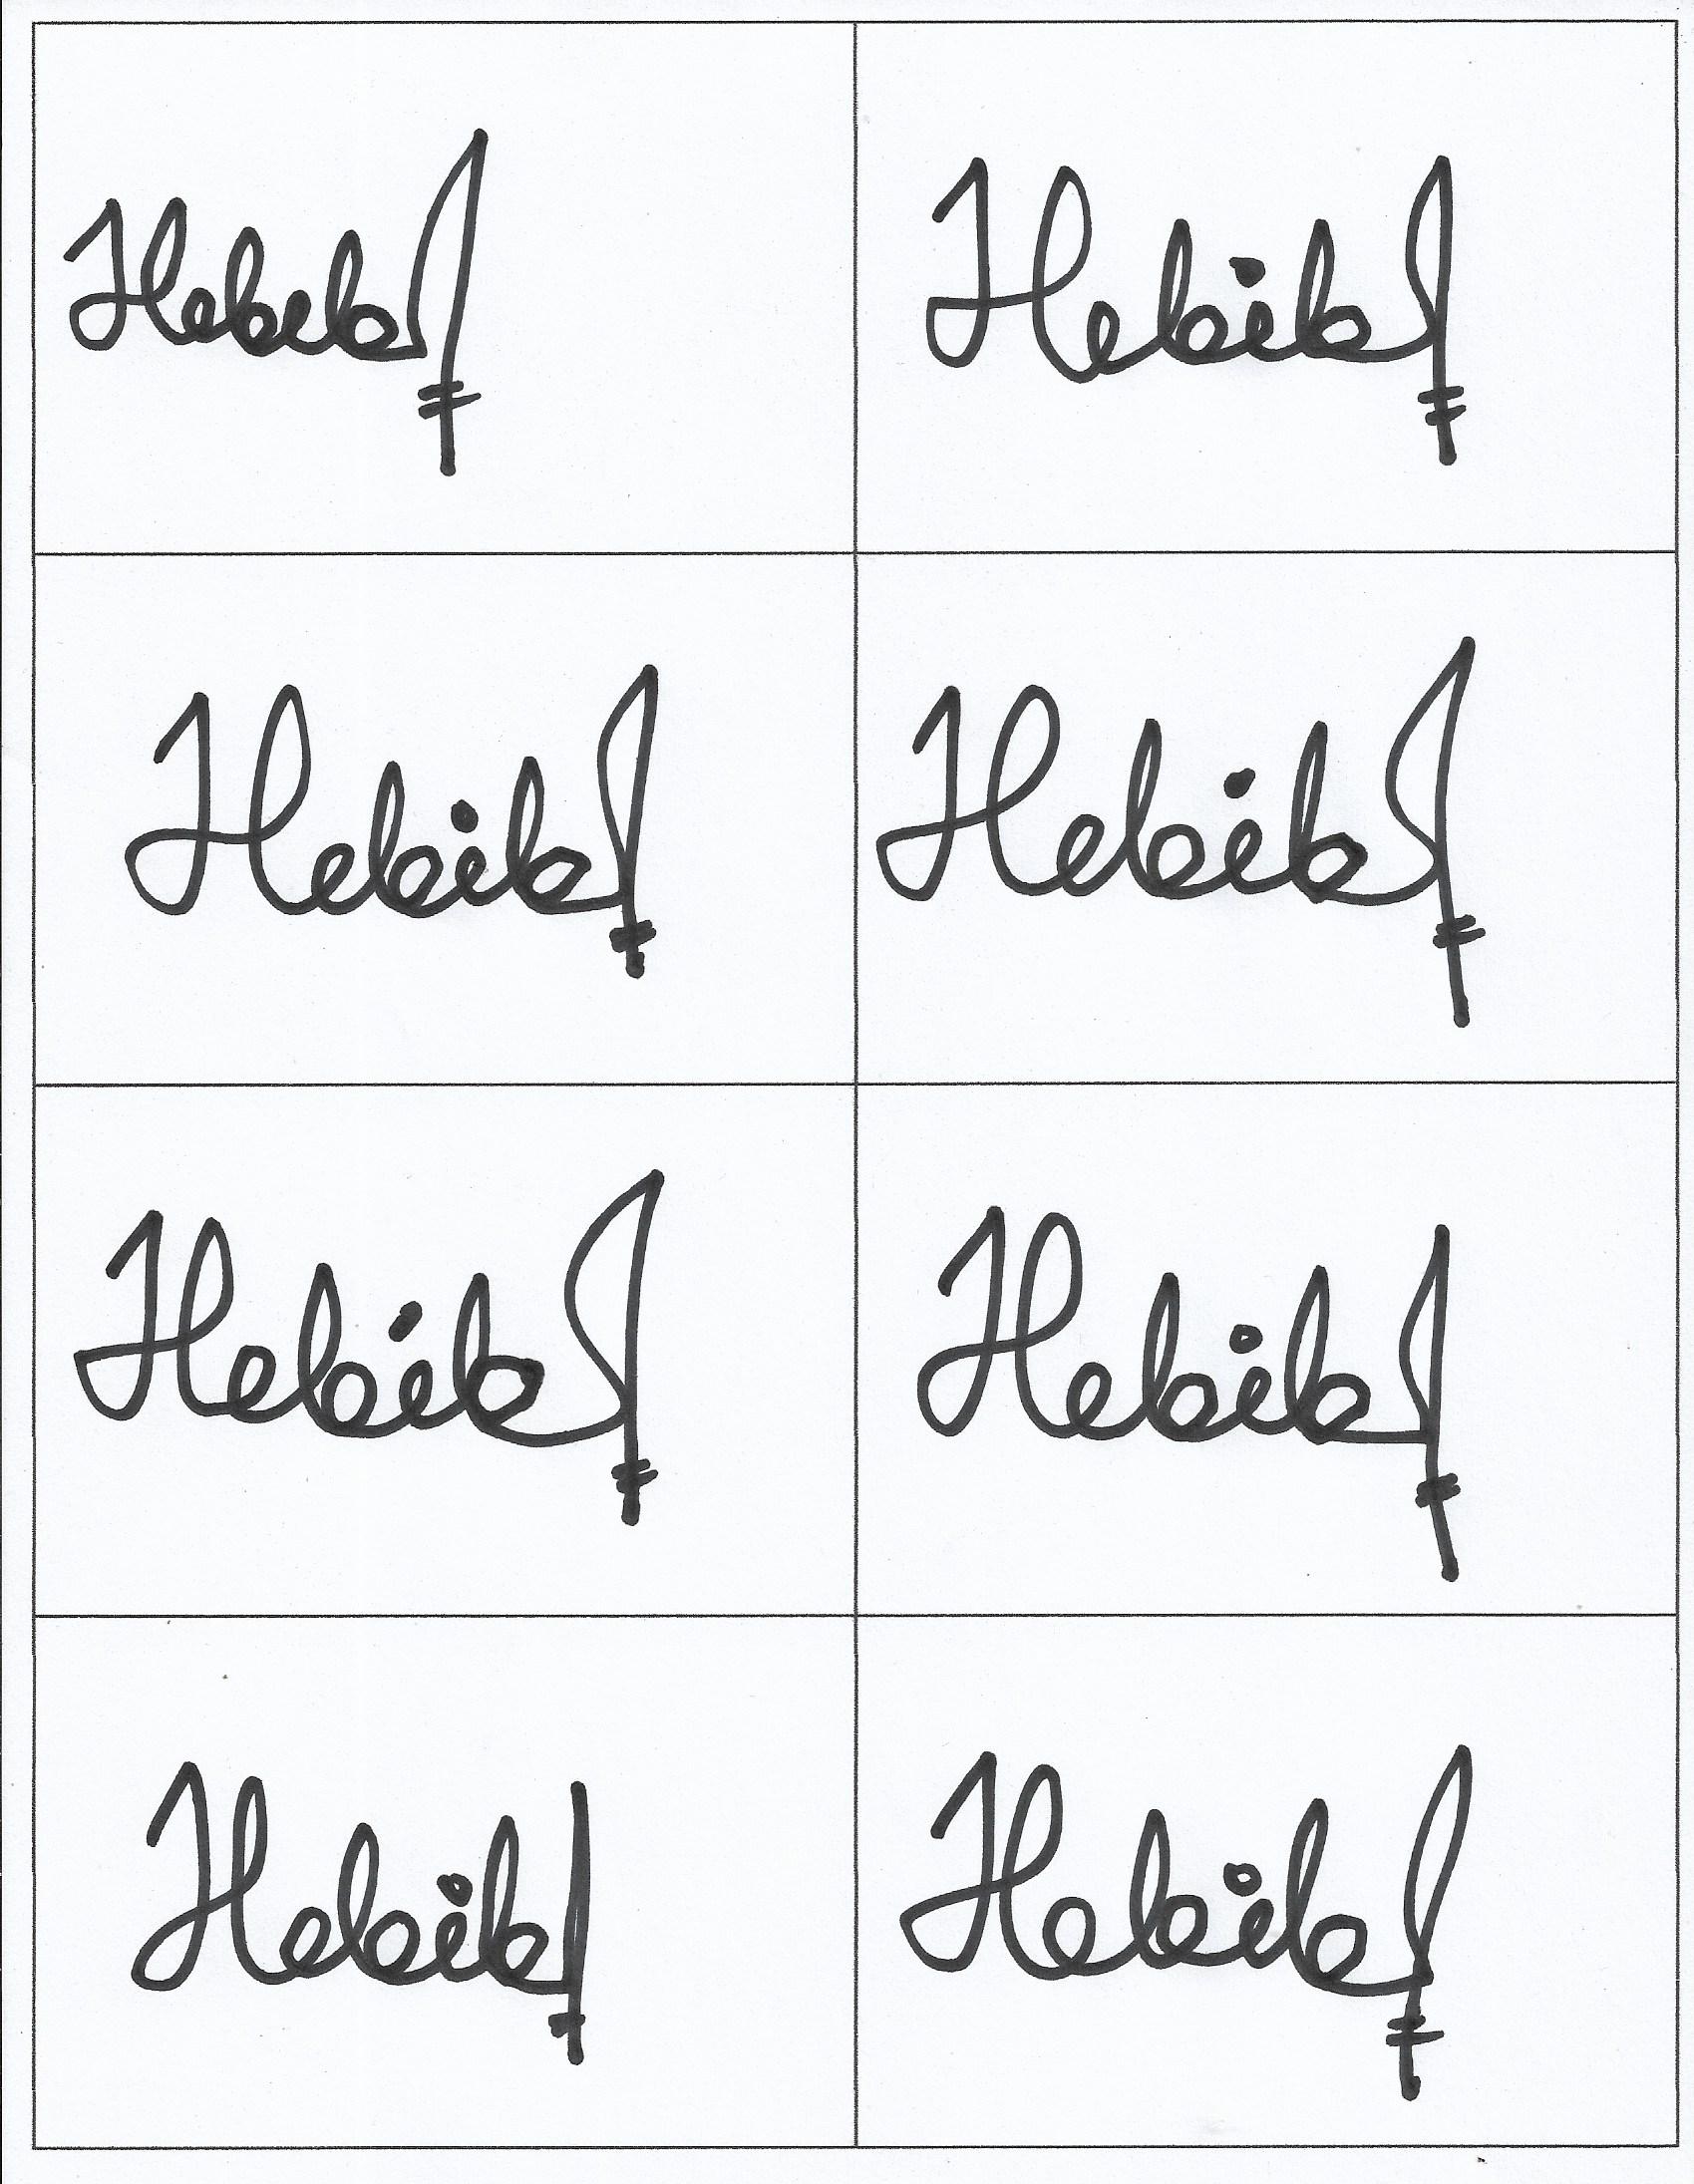 Hebib Hebib
Hebib Hebib
Hebib Hebib
Hebib Hebib